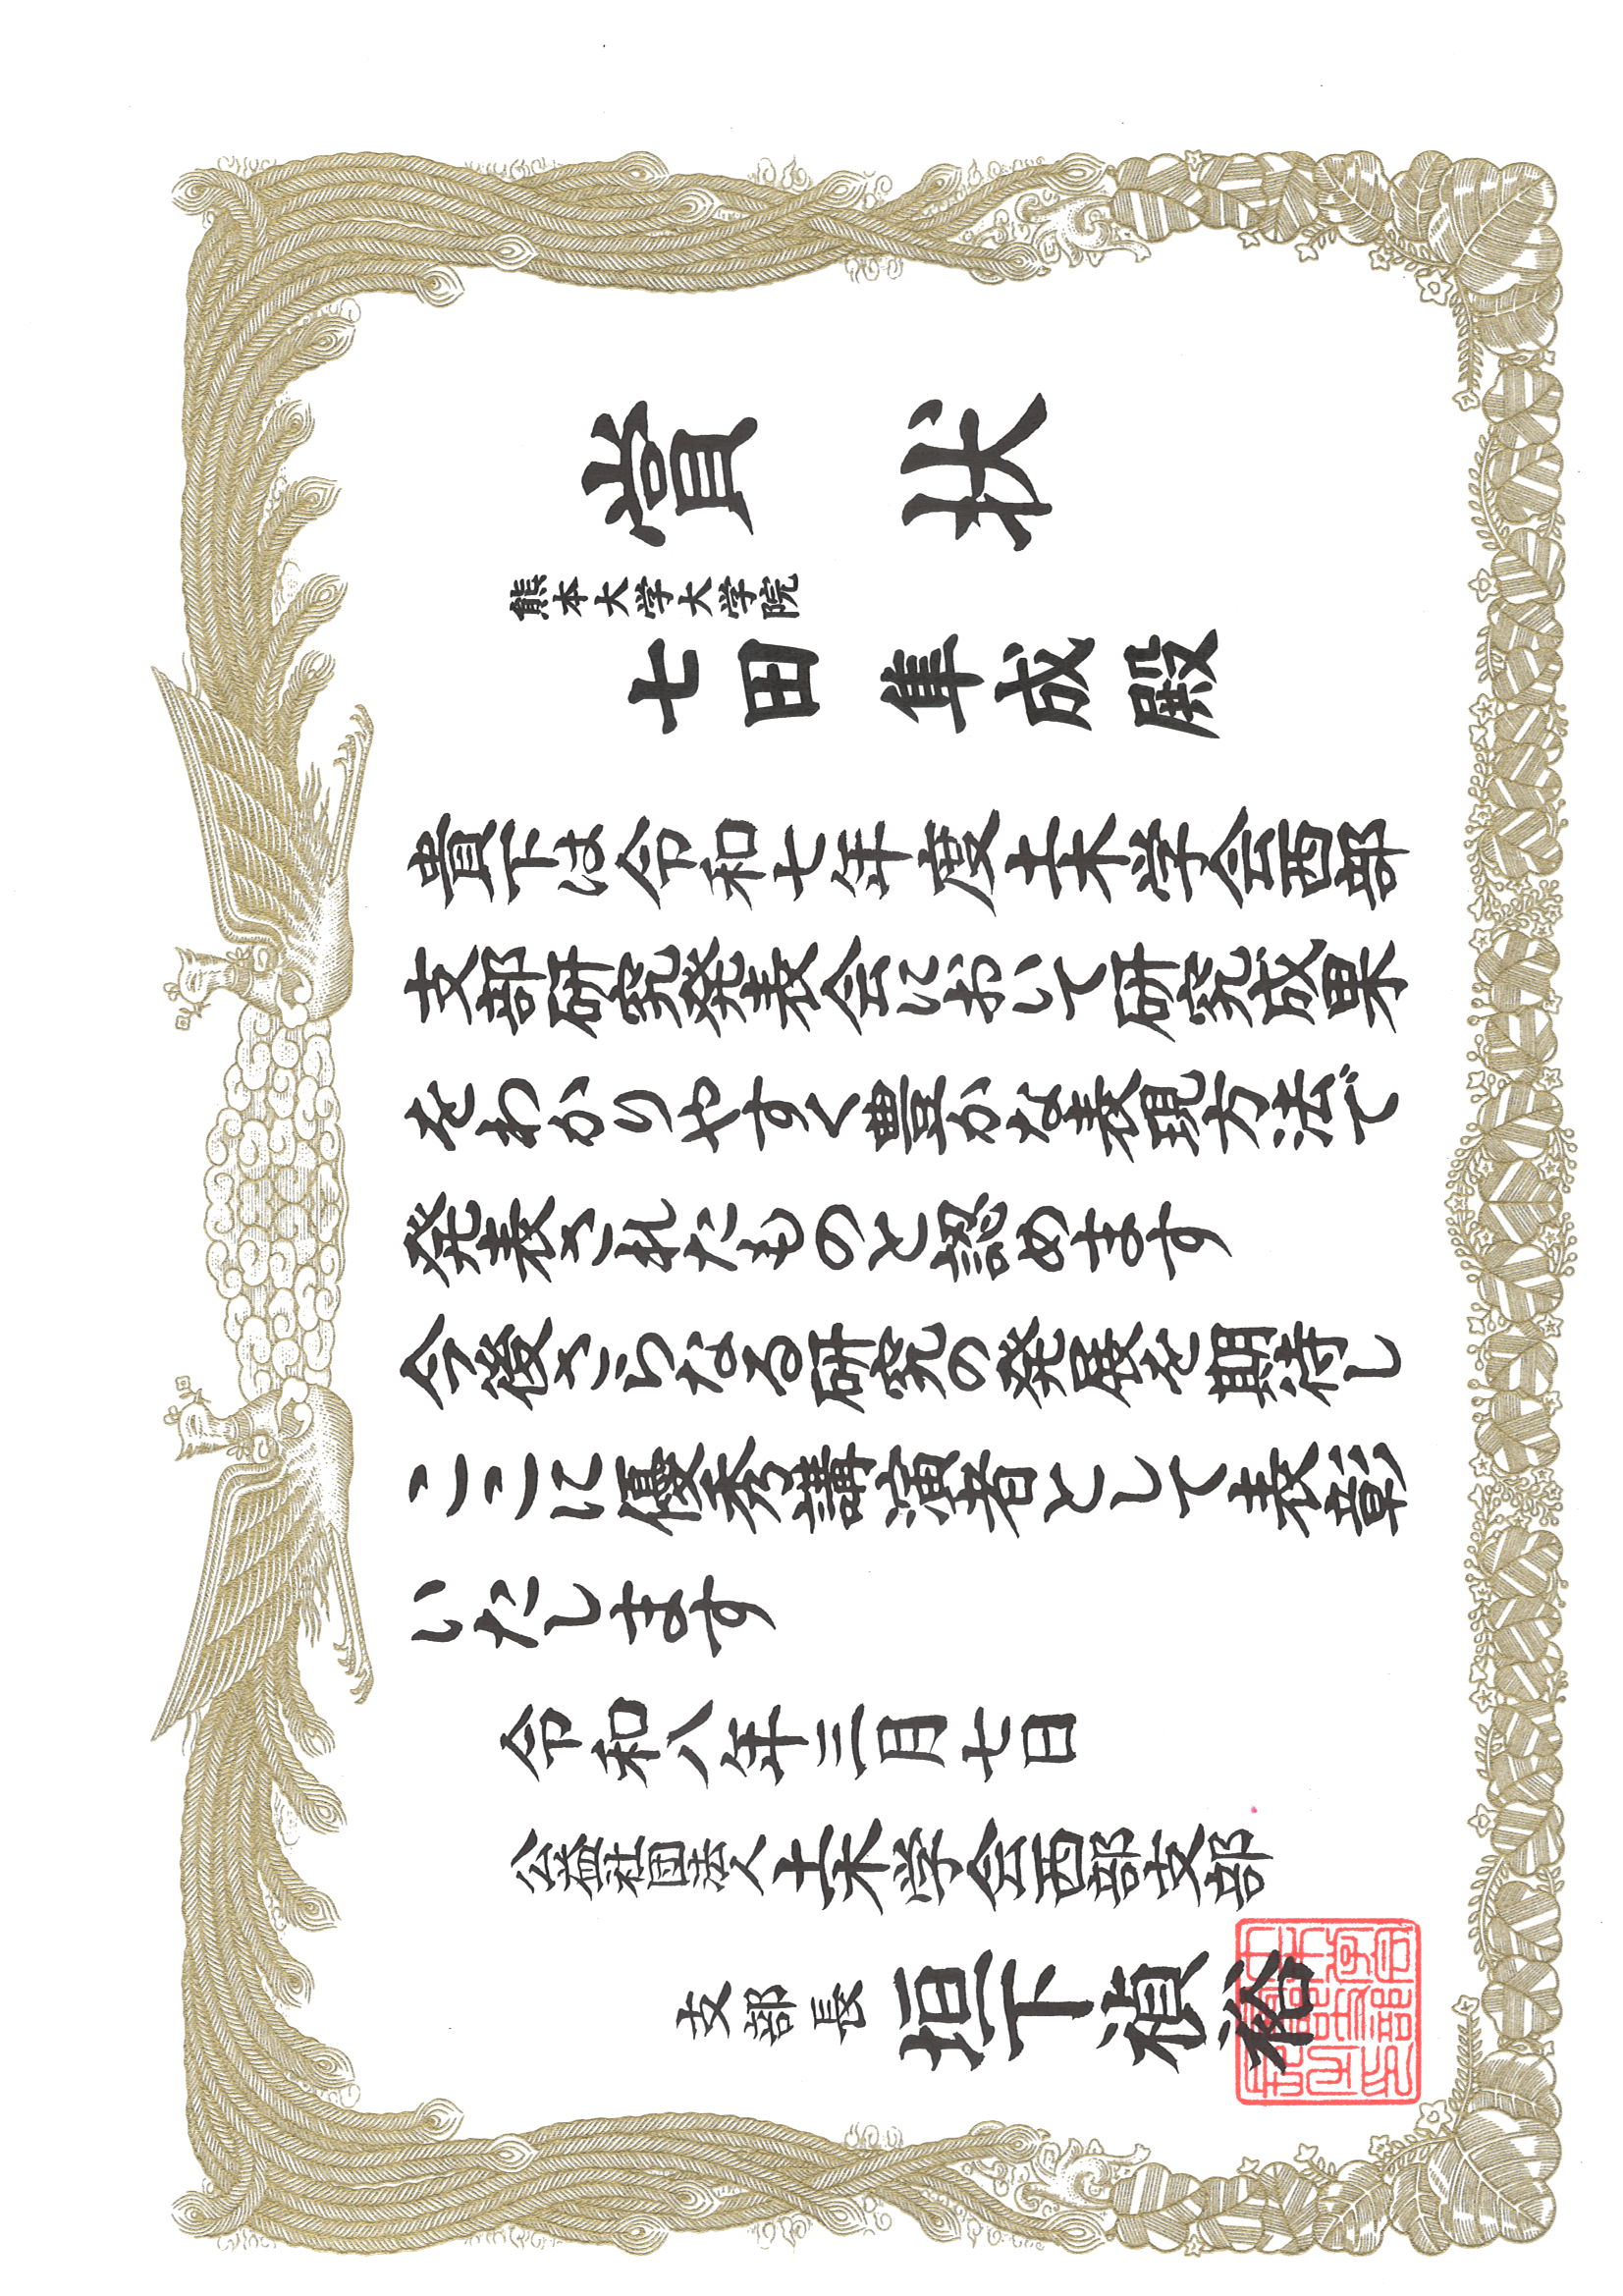 賞状
熊本大学大学院
七田隼成殿
貴下は令和七年度土木学会西部
支部研究発表会において研究成果
をわかりやすく豊かな表現方法で
発表されたものと認めます
今後さらなる研究の発展を期待し
ここに優秀講演者として表彰
いたします
令和八年三月七日
公益社団法人土木学会西部支部
支部長 垣下禎裕